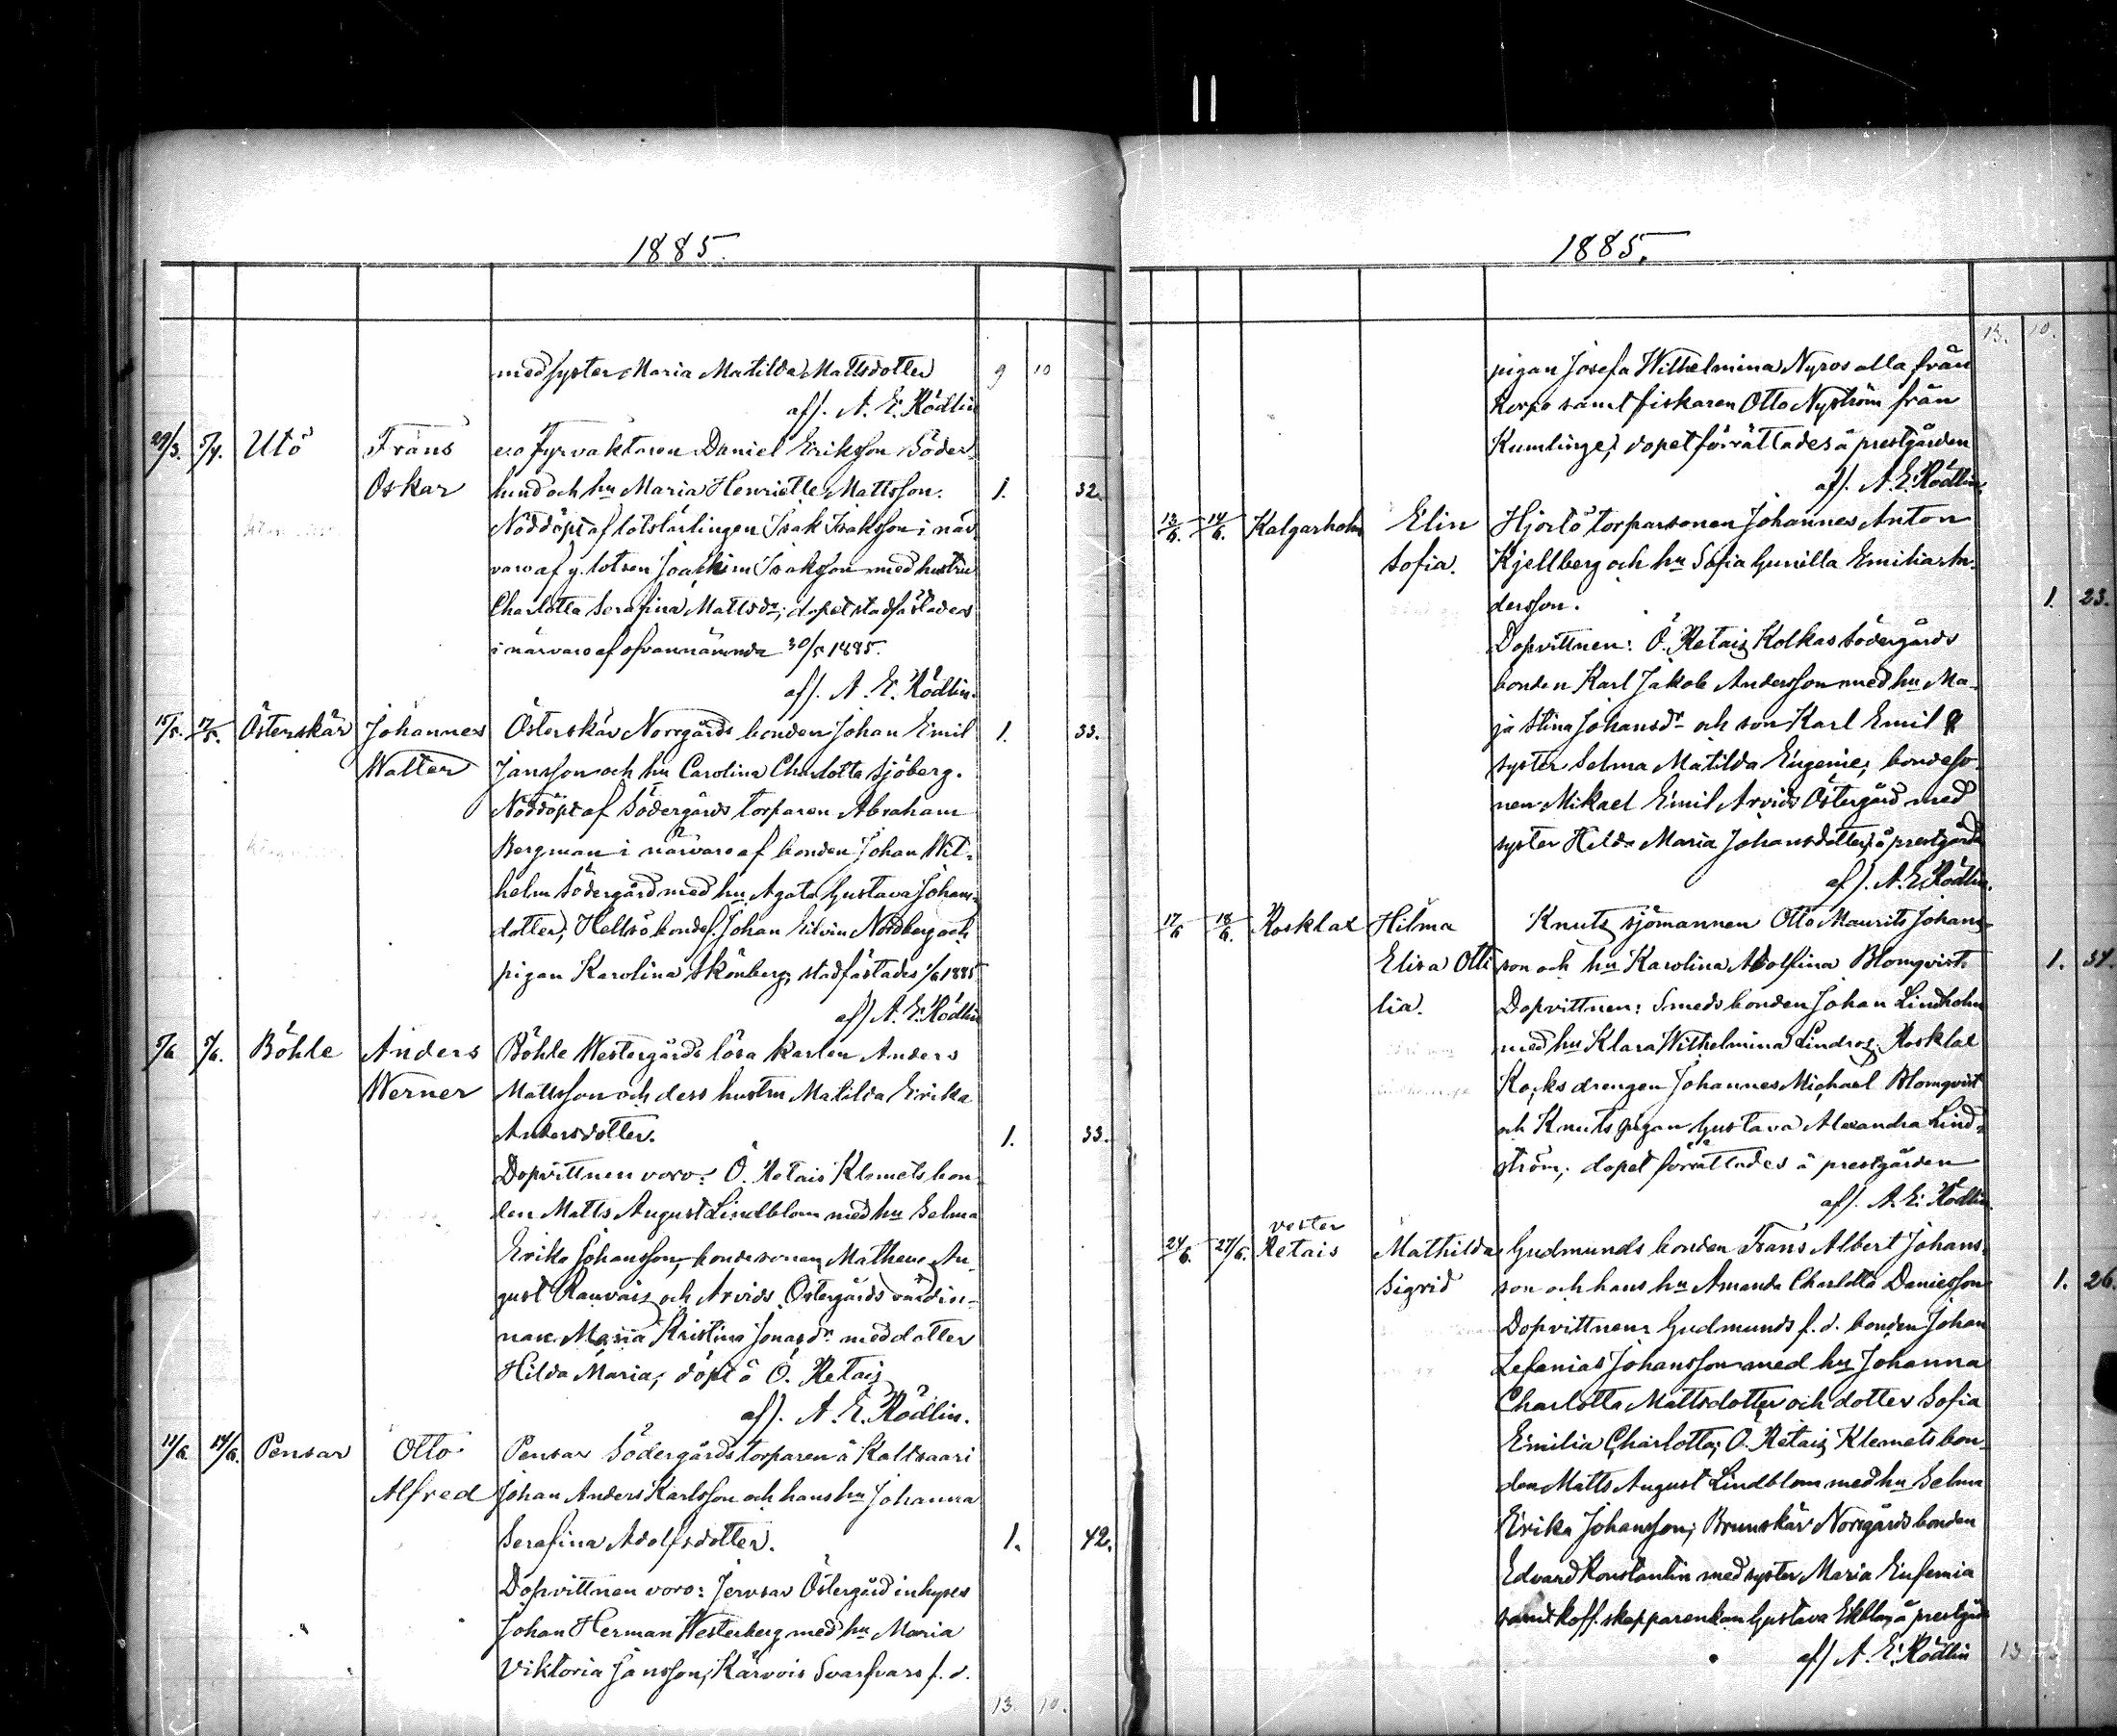 1885.
med syster Maria Matilda Mattsdotter 9 10
aff. A. E. Rödlin
29/3. 5/4. Utö Frans Fyrvaktaren Daniel Eriksson Söder-
Oskar lund och hu Maria Henriette Mattsson. 1. 32.
Nöddöpt af lotslärlingen Isak Isaksson i när-
varo af y. lotsen Joachim Isaksson med hustru
Charlotta Serafina Mattsdr; dopet stadfästades
i närvaro af ofvannämnda 30/5 1885.
aff. A. E. Rödlin.
15/5. 17/5. Österskär Johannes Österskär Norrgårds bonden Johan Emil 1. 33.
Walter Jansson och hu Carolina Charlotta Sjöberg.
Nöddöpt af Södergårds torparen Abraham
Bergman i närvaro af bonden Johan Wil-
helm Södergård med hu Agata Gustava Johans-
dotter; Hellsö bondes. Johan Edvin Nordberg och
pigan Karolina Skönberg, stadfästades 1/6 1885
aff A. E. Rödlin
5/6 5/6. Böhle Anders Böhle Westergårds lösa karlen Anders
Werner Mattsson och dess hustru Matilda Erika
Andersdotter. 1. 33.
Dopvittnen voro: Ö. Retais Klemets bon-
den Matts August Lindblom med hu Selma
Erika Johansson, bondesonen Matheus Au-
gust Ranvais och Arvids Östergårds värdin-
nan Maria Kristina Jonasdr med dotter
Hilda Maria; döpt å Ö. Retais
aff. A. E. Rödlin.
11/6. 14/6. Pensar Otto Pensar Södergårds torparen å Kaltsaari
Alfred Johan Anders Karlsson och hans hu Johanna
Serafina Adolfsdotter. 1. 42.
Dopvittnen voro: Jervsar Östergård inhyses
Johan Herman Westerberg med hu Maria
Viktoria Jansson; Kärvois Svarfvars f. d.
13. 10.
1885.
13. 10.
pigan Josefa Wilhelmina Nyros alla från
Korpo samt fiskaren Otto Nyström från
Kumlinge; dopet förrättades å prestgården
aff. A. E. Rödlin.
13/6. 14/6. Kalgarholm Elin Hjortö torparsonen Johannes Anton
Sofia. Kjellberg och hu Sofia Gunilla Emilia An-
dersson. 1. 23.
Dopvittnen: Ö. Retais Kolkas Södergårds
bonden Karl Jakob Andersson med hu Ma-
ja Stina Johansdr och son Karl Emil &
syster Selma Matilda Eugenie; bondeso-
nen Mikael Emil Arvids Östergård med
syster Hilda Maria Johansdotter; å prestgård
aff. A. E. Rödlin.
17/6 18/6. Rosklax Hilma Knuts sjömannen Otto Maurits Johans-
Elisa Otti son och hu Karolina Adolfina Blomqvist. 1. 34.
lia. Dopvittnen: Smeds bonden Johan Lindholm
med hu Klara Wilhelmina Lindros; Rosklax
Kocks drengen Johannes Michael Blomqvist
och Knuts pigan Gustava Alexandra Lind-
ström; dopet förrättades å prestgården
aff. A. E. Rödlin.
vester
24/6. 27/6. Retais Mathilda Gudmunds bonden Frans Albert Johans-
Sigrid son och hans hu Amanda Charlotta Danielsson 1. 26.
Dopvittnen: Gudmunds f. d. bonden Johan
Zefanias Johansson med hu Johanna
Charlotta Mattsdotter och dotter Sofia
Emilia Charlotta; Ö. Retais Klemets bon-
den Matts August Lindblom med hu Selma
Erika Johansson; Brunskär Norrgårds bonden
Edvard Konstantin med syster Maria Eufemia
samt koff. skepparenkan Gustava Ekblom; å prestgård
aff A. E. Rödlin 13